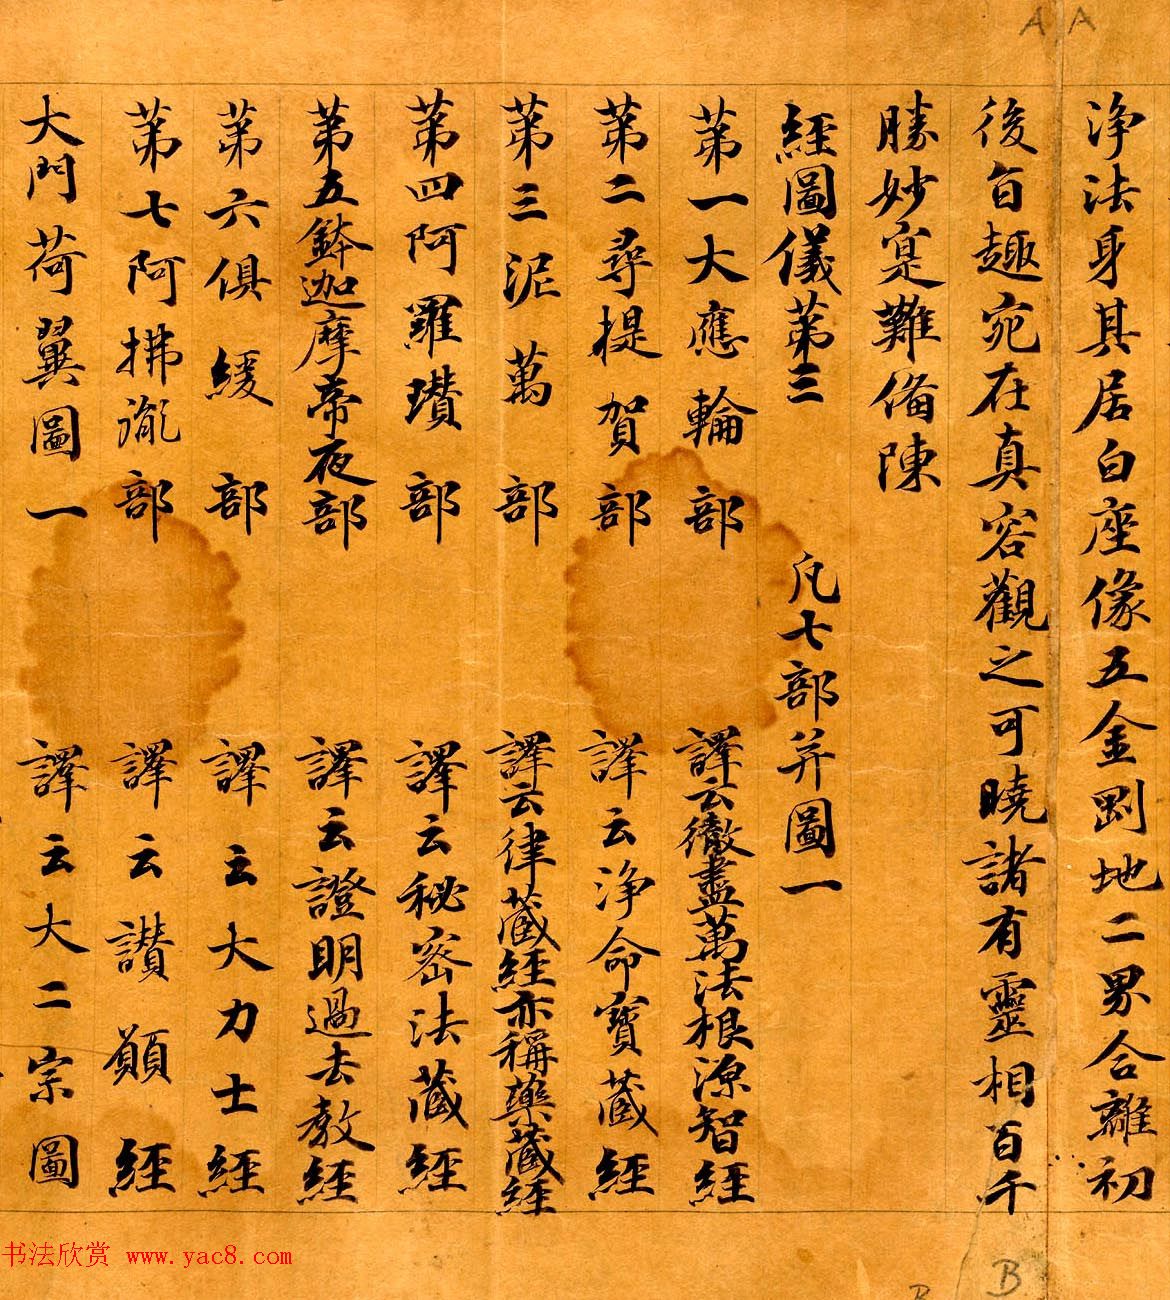 净法身其居白座像五金剛地二界合離初
後旨趣宛在真容觀之可曉諸有靈相百千
勝妙寔難俻陳
經圖儀第三 凡七部并圖一
第一大應輪部 譯云徹盡萬法根源智經
第二尋提賀部 譯云净命寶藏經
第三泥萬部 譯云律藏經亦稱藥藏經
第四阿羅瓚部 譯云秘密法藏經
第五鉢迦摩帝夜部 譯云證明過去教經
第六俱緩部 譯云大力士經
第七阿拂胤部 譯云讚願經
大門荷翼圖一 譯云大二宗圖
A A
B
书法欣赏 www.yac8.com